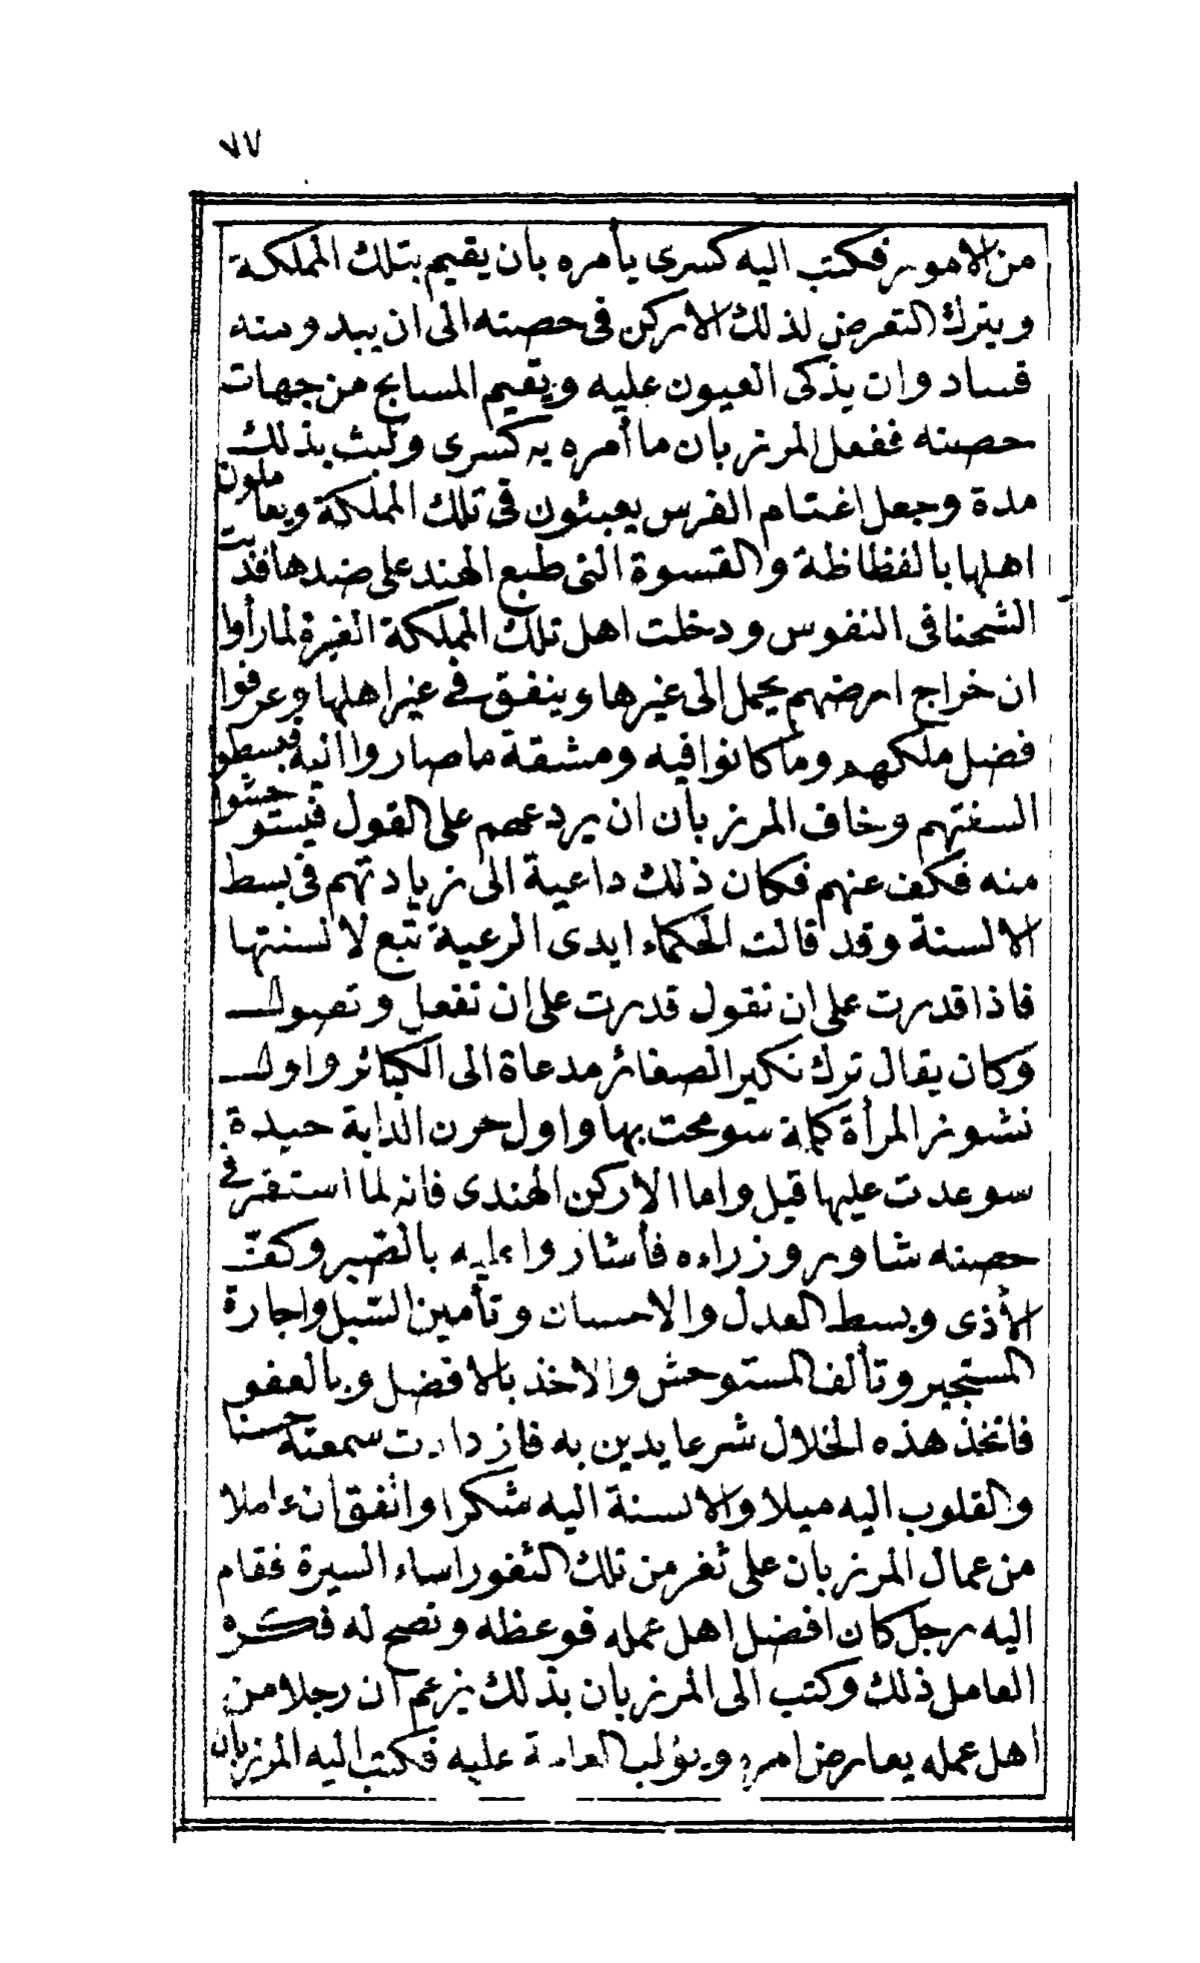 ٧٧
من الامور فكتب اليه كسرى يأمره بأن يقيم بتلك المملكة
ويترك التعرض لذلك الاركن فى حصنه الى ان يبدو منه
فساد وان يذكى العيون عليه ويقيم المسابح من جهات
حصنه ففعل المرزبان ما أمره به كسرى ولبث بذلك
مدة وجعل اغتام الفرس يعبثون فى تلك المملكة ويعاملون
اهلها بالفظاظة والقسوة التى طبع الهند على ضدها فدبت
الشحنا فى النفوس ودخلت اهل تلك المملكة الغيرة لما رأوا
ان خراج ارضهم يحمل الى غيرها وينفق فى غير اهلها وعرفوا
فضل ملكهم وما كانوا فيه ومشقة ما صاروا اليه فبسطوا
السنتهم وخاف المرزبان ان يردعهم على القول فيستوحشوا
منه فكف عنهم فكان ذلك داعية الى زيادتهم فى بسط
الالسنة وقد قالت الحكماء ايدى الرعية تبع لالسنتها
فاذا قدرت على ان تقول قدرت على ان تفعل وتصول
وكان يقال ترك نكير الصغائر مدعاة الى الكبائر واول
نشوز المرأة كلمة سومحت بها واول حرن الدابة حيدة
سوعدت عليها قيل واما الاركن الهندى فانه لما استقر فى
حصنه شاور وزراءه فأشاروا عليه بالصبر وكف
الأذى وبسط العدل والاحسان وتأمين السبل واجارة
المستجير وتألف المستوحش والاخذ بالافضل وبالعفو
فاتخذ هذه الخلال شرعا يدين به فازدادت سمعته حسنا
والقلوب اليه ميلا والالسنة اليه شكرا واتفق ان عاملا
من عمال المرزبان على ثغر من تلك الثغور اساء السيرة فقام
اليه رجل كان افضل اهل عمله فوعظه ونصح له فكره
العامل ذلك وكتب الى المرزبان بذلك يزعم ان رجلا من
اهل عمله يعارض امره ويؤلب العامة عليه فكتب اليه المرزبان